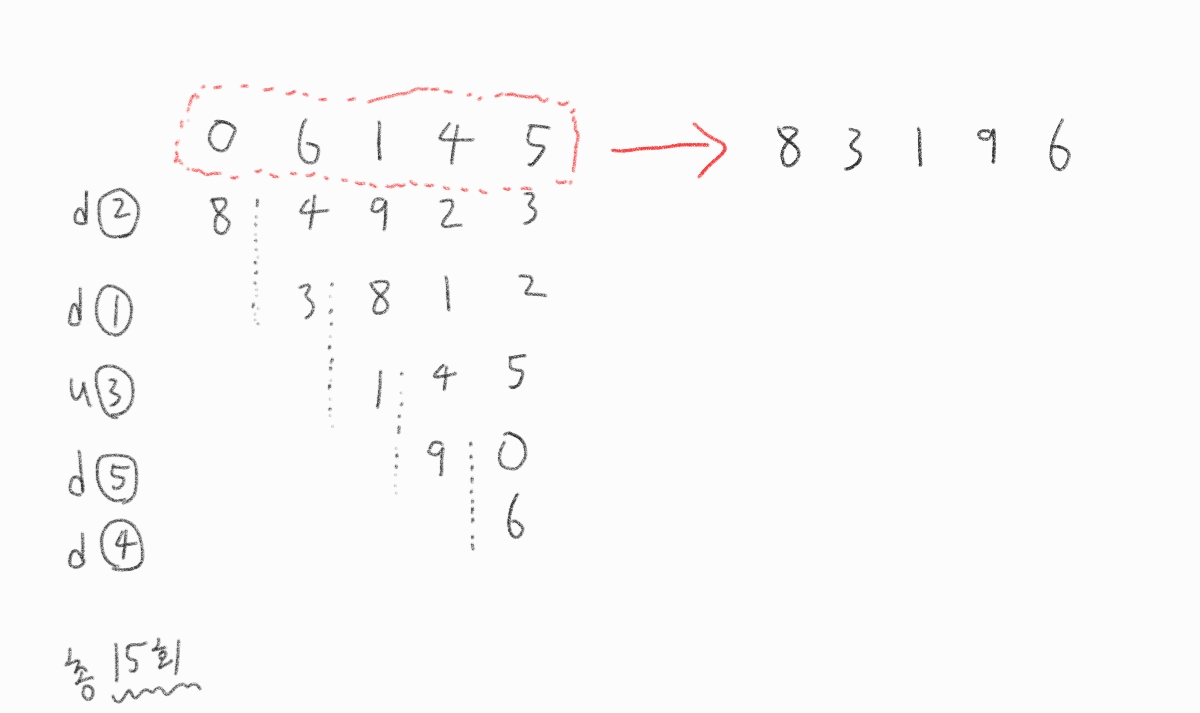 0 6 1 4 5 → 8 3 1 9 6
d ② 8 4 9 2 3
d ① 3 8 1 2
u ③ 1 4 5
d ⑤ 9 0
d ④ 6
총 15회